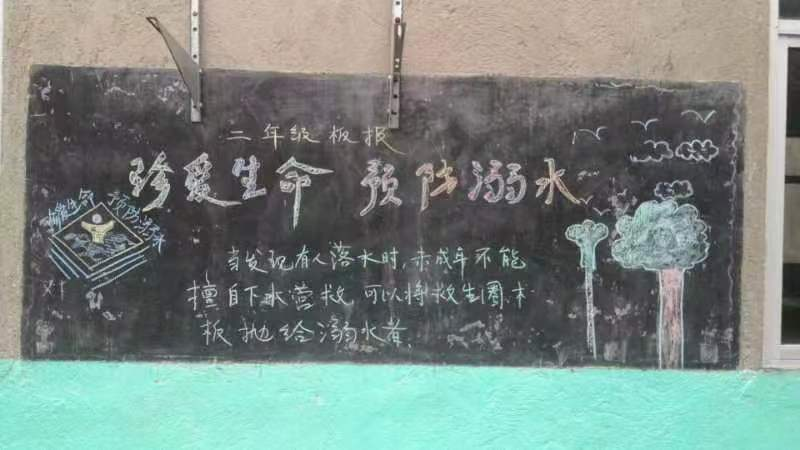 二年级板报
珍爱生命 预防溺水
珍爱生命 预防溺水
当发现有人落水时,未成年不能
擅自下水营救,可以将救生圈.木
板抛给溺水者.